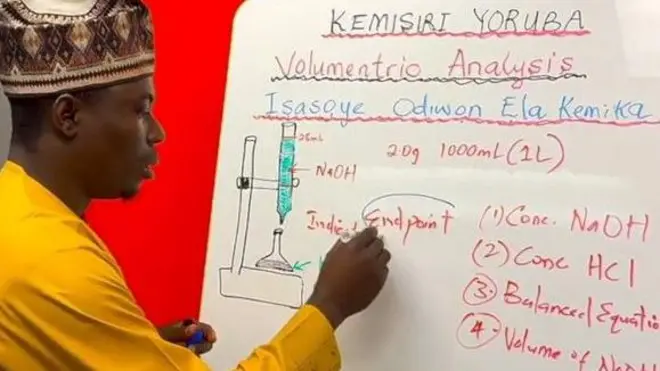 KEMISIRI YORUBA
Volumentrio Analysis
Isasoye Odiwon Ela Kemika
25mL
2.0g 1000mL (1L)
NaOH
Endpoint
(1) Conc. NaOH
(2) Conc HCl
(3) Balanced Equatio
(4) Volume of NaOH